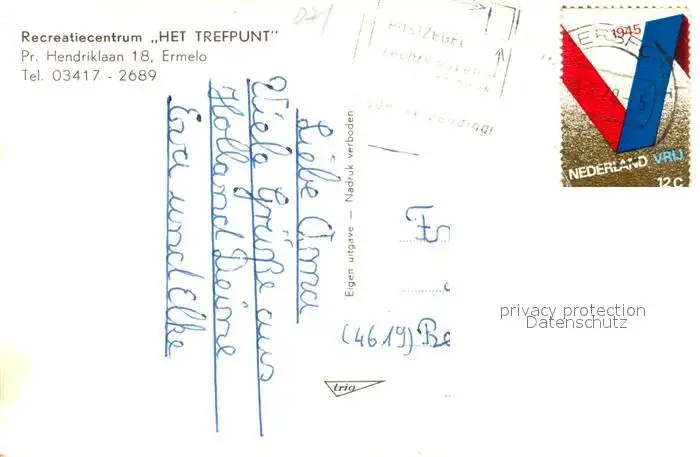 Recreatiecentrum „HET TREFPUNT"
Pr. Hendriklaan 18, Ermelo
Tel. 03417 - 2689
Liebe Oma
Viele Grüße aus
Holland Deine
Eva und Elke
Eigen uitgave — Nadruk verboden
POSTZEGEL
rechts
1945
NEDERLAND VRIJ
12c
5
Fr
(4619) Be
privacy protection
Datenschutz
trio